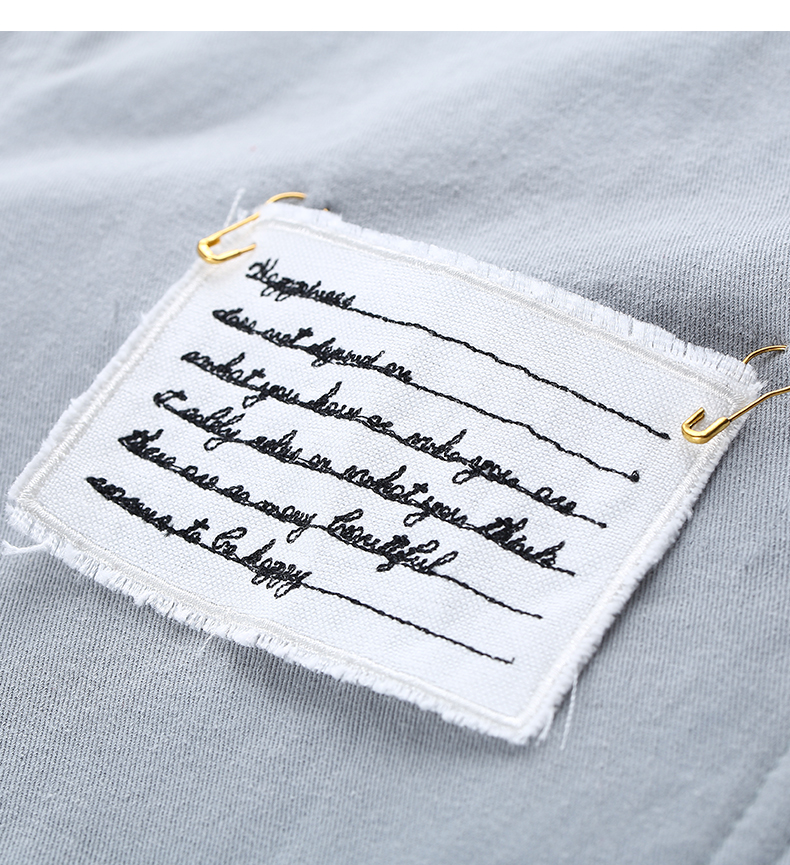 Happiness
does not depend on
what you have or who you are
it solely relies on what you think
there are as many beautiful
reasons to be happy